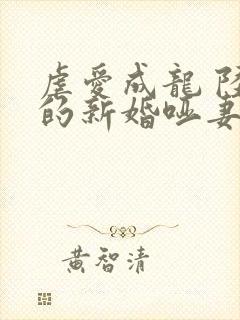 虐愛成龍 陸
的新婚啞妻
黃智清